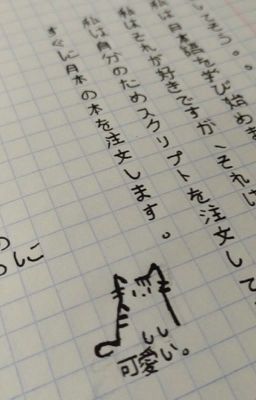 してそう。。
私は日本語を学び始めま
私はそれが好きですが、それは
私は自分のためスクリプトを注文して
すぐに日本の本を注文します。
に
可愛い。